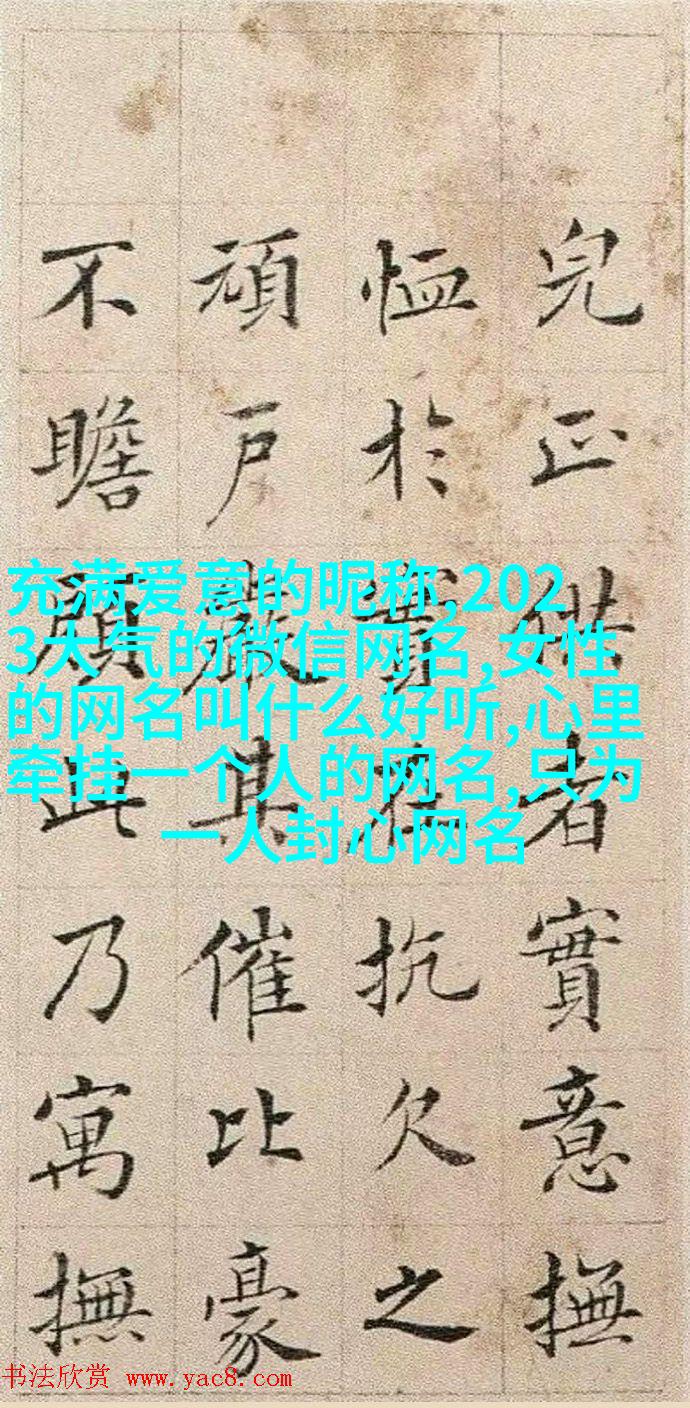 完正供者實意撫
恤於實在抗欠之
頑戶嚴其催比豪
不瞻顧此乃寓撫
充满爱意的昵称,202
3大气的微信网名,女性
的网名叫什么好听,心里
牵挂一个人的网名,只为
一人封心网名
书法欣赏 www.yac8.com